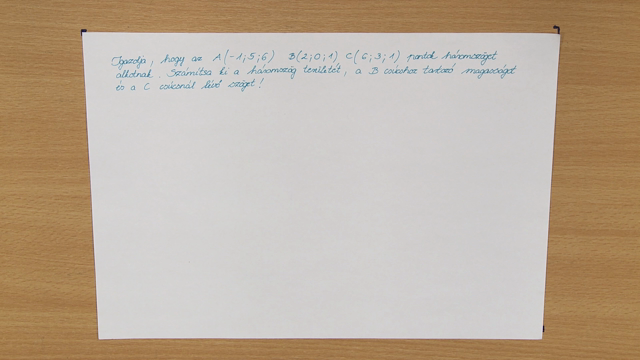 Igazolja, hogy az A(-1;5;6) B(2;0;1) C(6;3;1) pontok háromszöget
alkotnak. Számítsa ki a háromszög területét, a B csúcshoz tartozó magasságot
és a C csúcsnál lévő szöget!